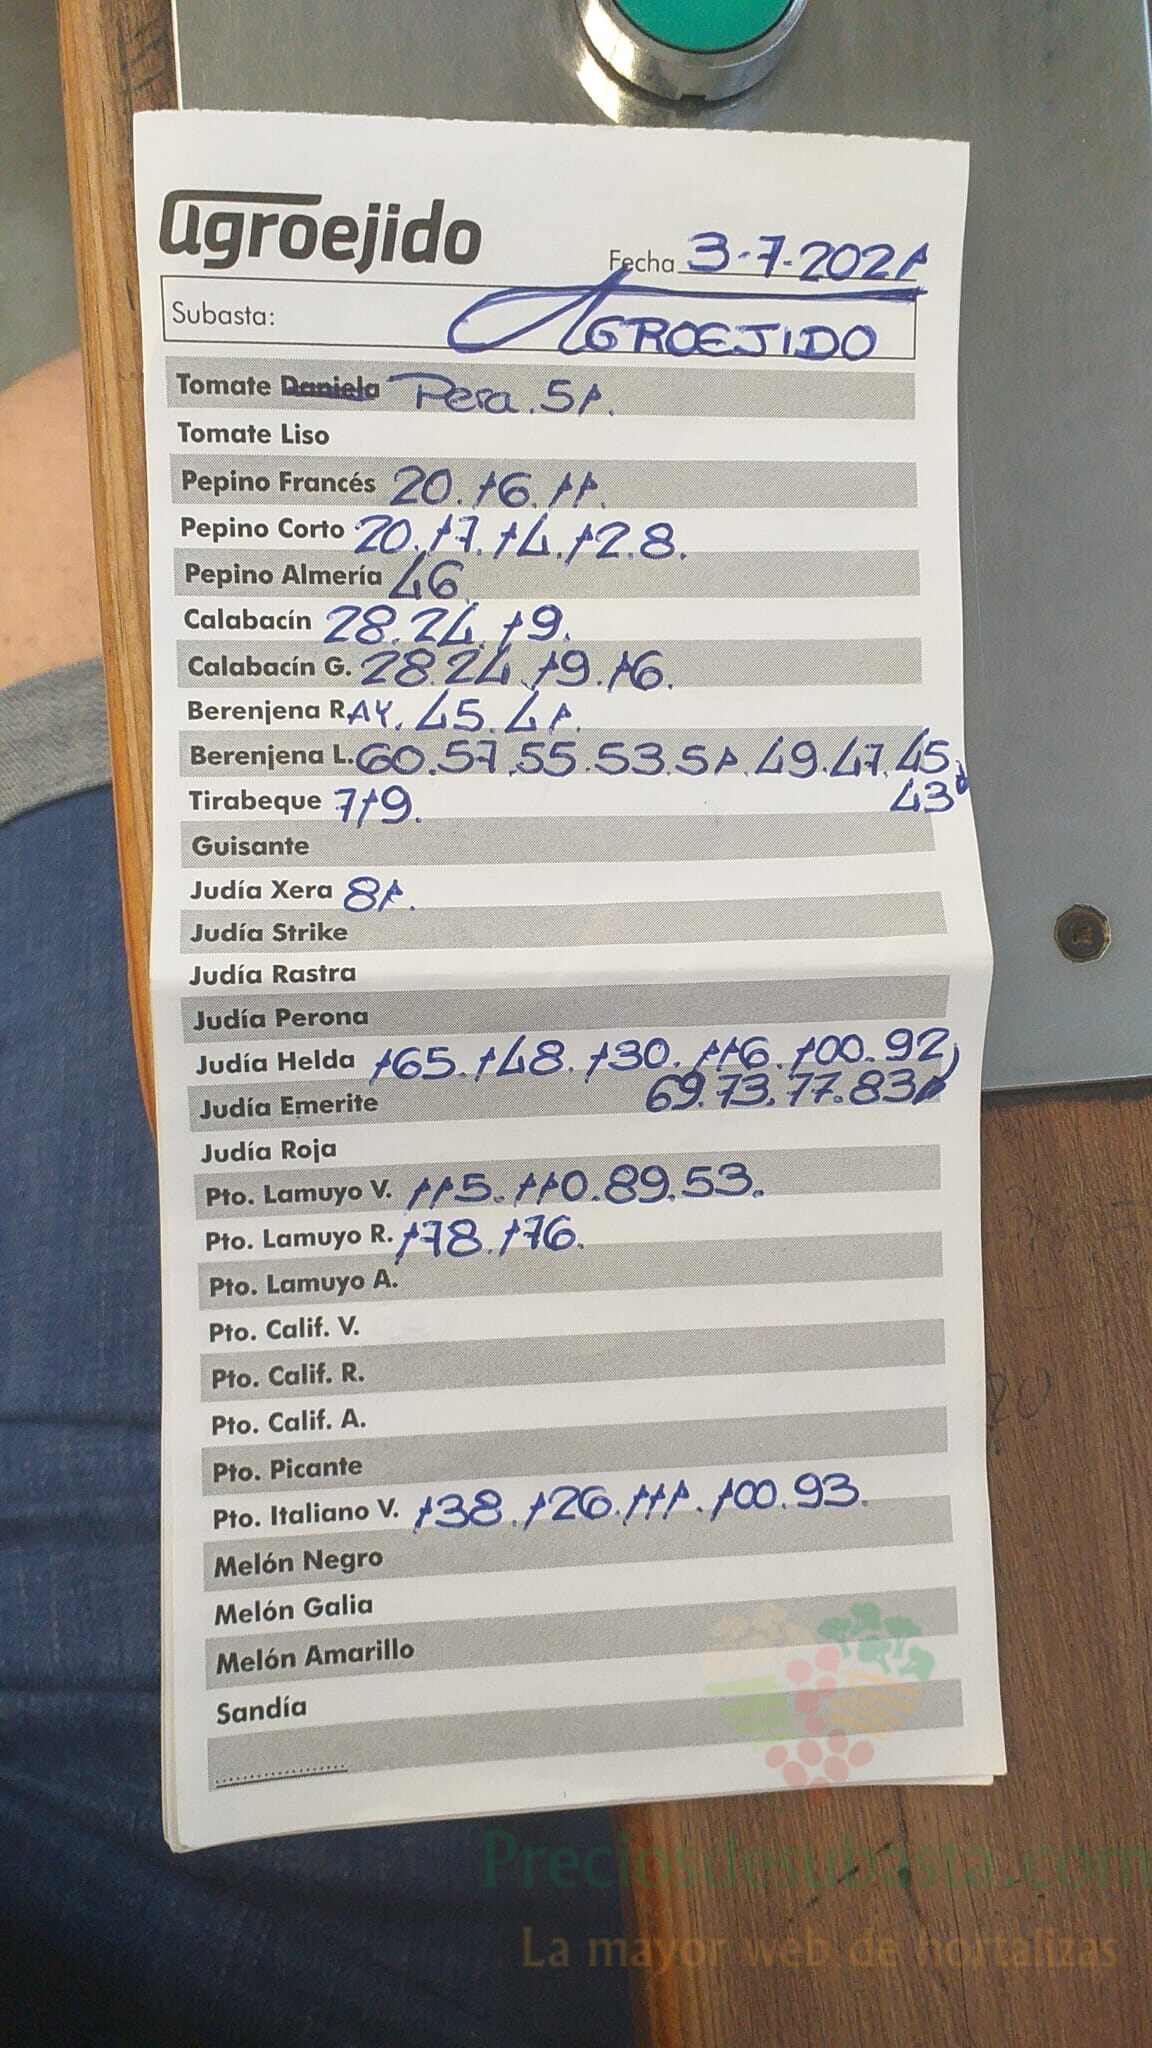 agroejido
Fecha 3-7-2021
Subasta: AGROEJIDO
Tomate Daniela Pera. 51.
Tomate Liso
Pepino Francés 20. 16. 11.
Pepino Corto 20. 17. 14. 12. 8.
Pepino Almería 46.
Calabacín 28. 24. 19.
Calabacín G. 28. 24. 19. 16.
Berenjena RAY. 45. 41.
Berenjena L. 60. 57. 55. 53. 51. 49. 47. 45.
43
Tirabeque 719.
Guisante
Judía Xera 81.
Judía Strike
Judía Rastra
Judía Perona
Judía Helda 165. 148. 130. 116. 100. 92
69. 73. 77. 83
Judía Emerite
Judía Roja
Pto. Lamuyo V. 115. 110. 89. 53.
Pto. Lamuyo R. 178. 176.
Pto. Lamuyo A.
Pto. Calif. V.
Pto. Calif. R.
Pto. Calif. A.
Pto. Picante
Pto. Italiano V. 138. 126. 111. 100. 93.
Melón Negro
Melón Galia
Melón Amarillo
Sandía
Preciosdesubasta.com
La mayor web de hortalizas